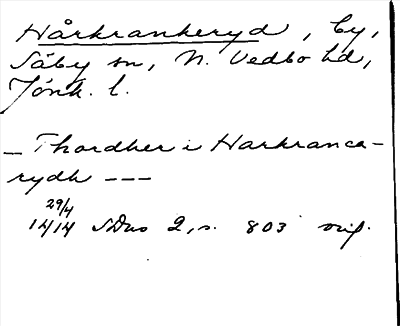 Hårkrankeryd, by,
Säby sn, N. Vedbo hd,
Jönk. l.
_ Thordher i Harkranca-
rydh ---
29/4
1414 SDns 2, s. 803 orig.